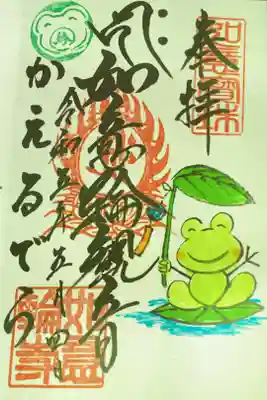 奉拝
如意寳珠
如意輪観音
令和五年五月四日
かえるでら
如意輪寺